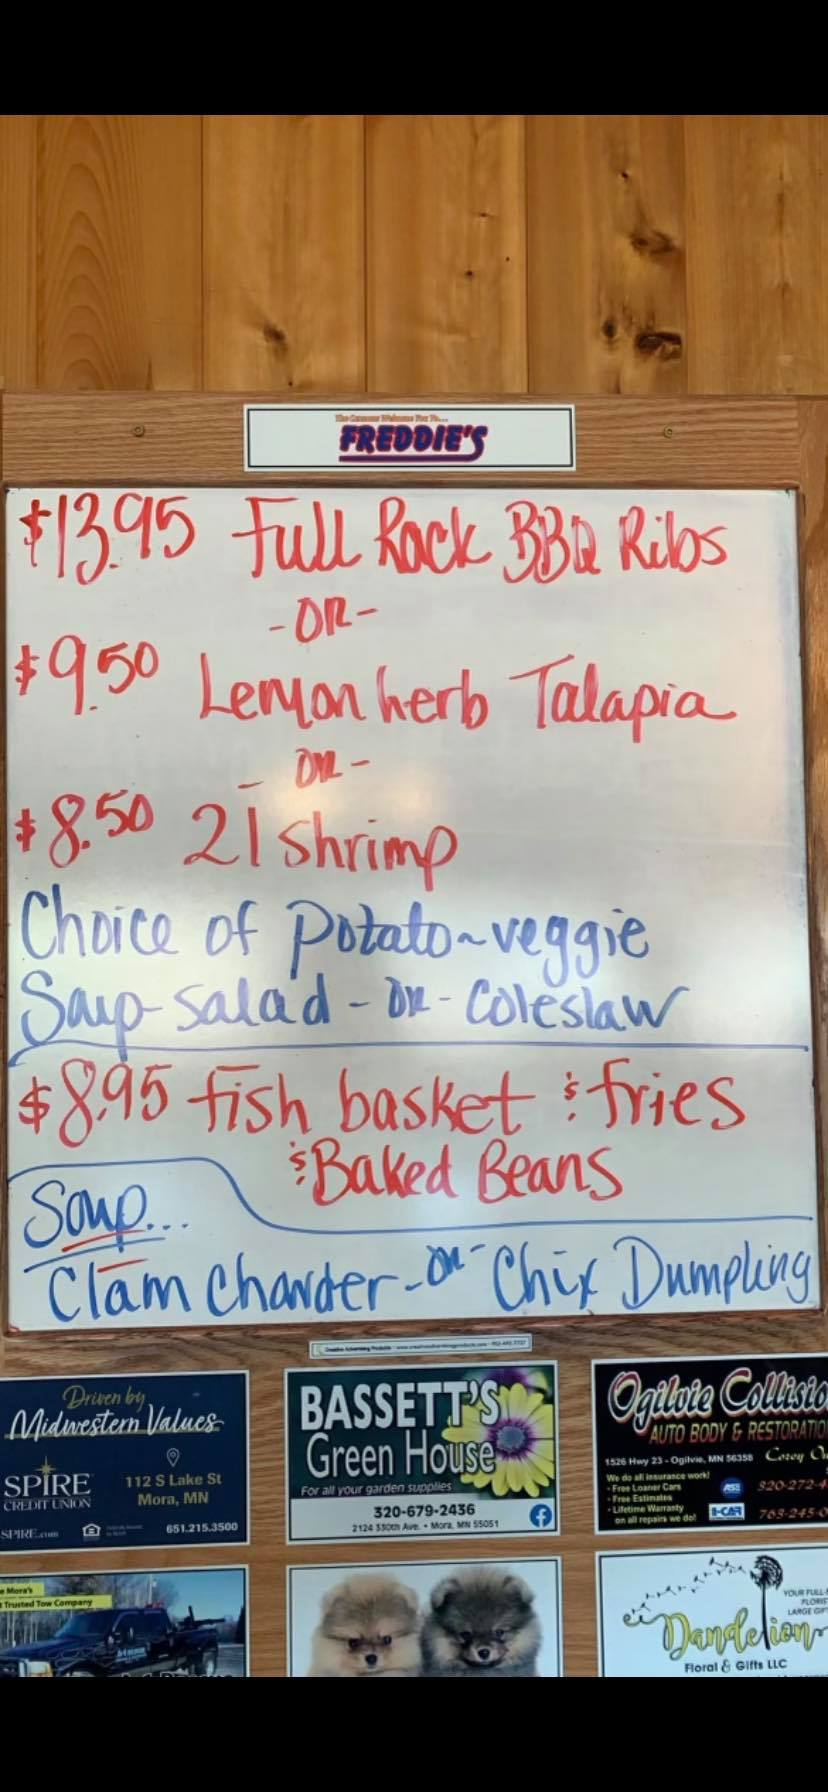 FREDDIE'S
$13.95 Full Rack BBQ Ribs
-OR-
$9.50 Lemon herb Talapia
- OR -
$8.50 21 shrimp
Choice of potato~veggie
Soup-salad - OR - Coleslaw
$8.95 fish basket & fries
& Baked Beans
Soup...
Clam Chowder - OR - Chix Dumpling
Driven by
Midwestern Values
SPIRE
CREDIT UNION
112 S Lake St
Mora, MN
SPIRE.com
651.215.3500
BASSETT'S
Green House
For all your garden supplies
320-679-2436
2124 330th Ave. • Mora, MN 55051
Ogilvie Collisio
AUTO BODY & RESTORATIO
1526 Hwy 23 - Ogilvie, MN 56358
Corey
We do all insurance work!
- Free Loaner Cars
- Free Estimates
- Lifetime Warranty
on all repairs we do!
ASE
I-CAR
320-272-4
763-245-0
e Mora's
t Trusted Tow Company
YOUR FULL-
FLORIS
LARGE GIF
Dandelion
Floral & Gifts LLC